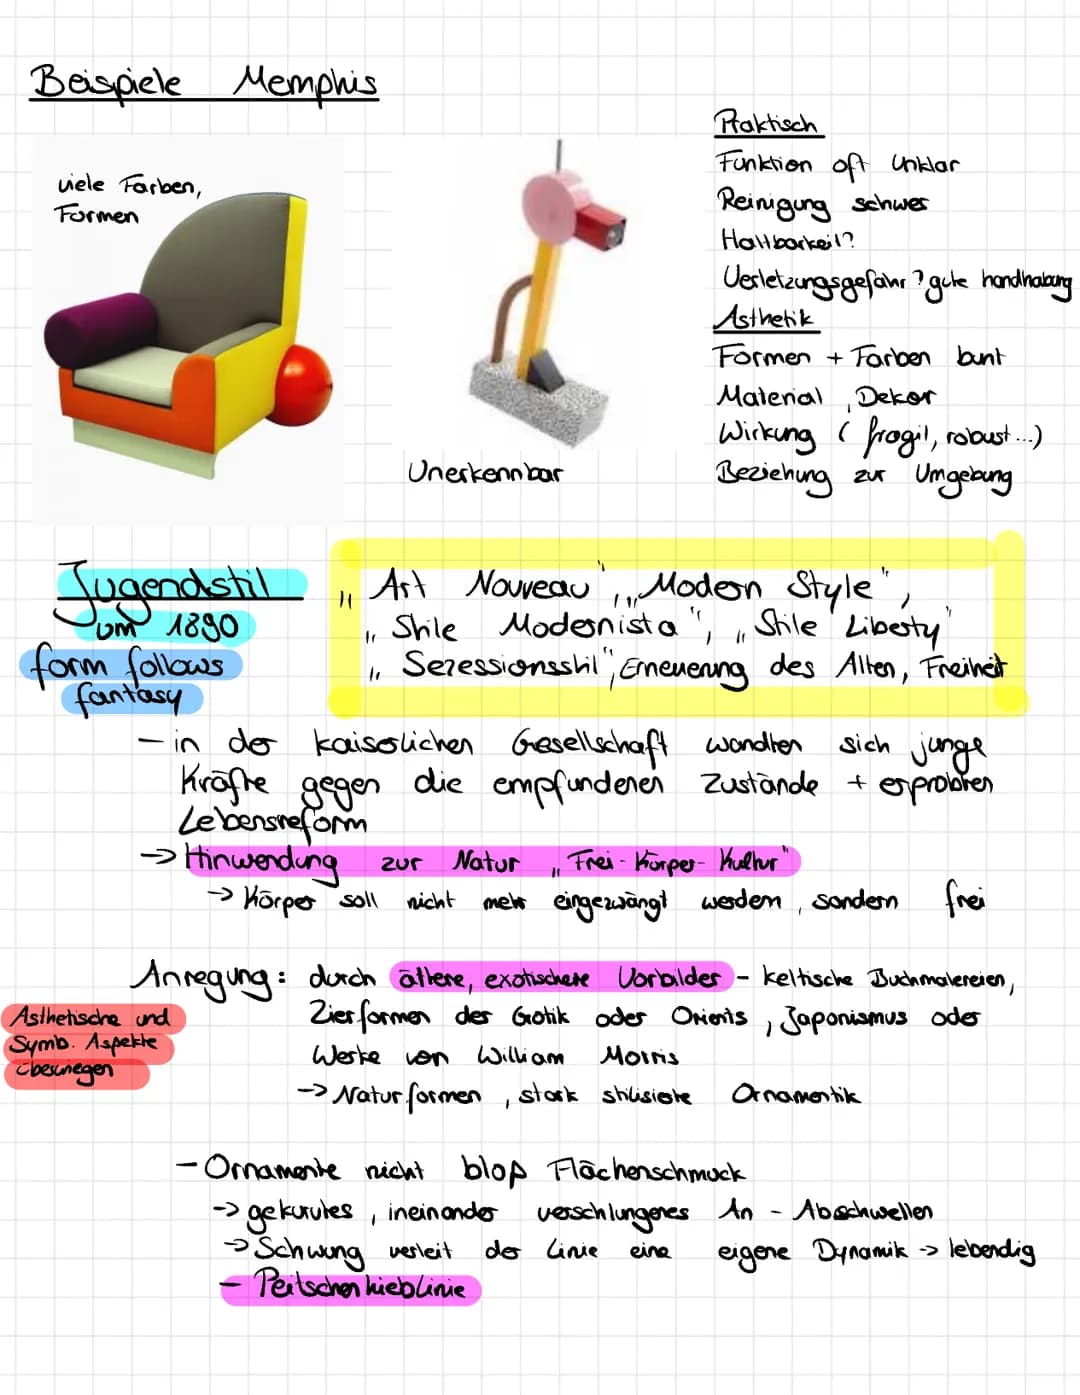 Beispiele Memphis
viele Farben,
Formen
Unerkennbar
Praktisch
Funktion oft unklar
Reinigung schwer
Haltbarkeit?
Verletzungsgefahr? gute handhabung
Ästhetik
Formen + Farben bunt
Material, Dekor
Wirkung (fragil, robust...)
Beziehung zur Umgebung
Jugendstil
um 1890
form follows
fantasy
„Art Nouveau", „Modern Style",
„Stile Modernista", „Stile Liberty"
„Sezessionsstil", Erneuerung des Alten, Freiheit
- in der kaiserlichen Gesellschaft wandten sich junge
Kräfte gegen die empfundenen Zustände + erprobten
Lebensreform
→ Hinwendung zur Natur „Frei-Körper-Kultur"
→ Körper soll nicht mehr eingezwängt werden, sondern frei
Anregung: durch ältere, exotischere Vorbilder - keltische Buchmalereien,
Zierformen der Gotik oder Orients, Japonismus oder
Werke von William Morris
→ Naturformen, stark stilisierte Ornamentik
Ästhetische und
Symb. Aspekte
überwiegen
- Ornamente nicht bloß Flächenschmuck
→ gekurvtes, ineinander verschlungenes An - Abschwellen
→ Schwung verleit der Linie eine eigene Dynamik → lebendig
- Peitschenhieblinie